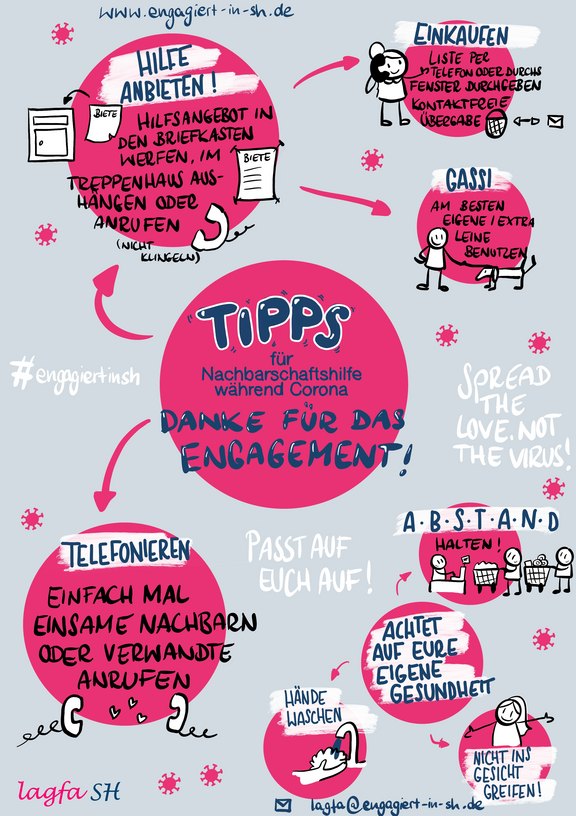 www.engagiert-in-sh.de
HILFE
ANBIETEN!
BIETE
HILFSANGEBOT IN
DEN BRIEFKASTEN
WERFEN, IM
TREPPENHAUS AUS-
HÄNGEN ODER
ANRUFEN
(NICHT
KLINGELN)
BIETE
EINKAUFEN
LISTE PER
TELEFON ODER DURCHS
FENSTER DURCHGEBEN
KONTAKTFREIE
ÜBERGABE
GASSI
AM BESTEN
EIGENE / EXTRA
LEINE
BENUTZEN
TIPPS
für
Nachbarschaftshilfe
während Corona
DANKE FÜR DAS
ENGAGEMENT!
#engagiertinsh
SPREAD
THE
LOVE. NOT
THE VIRUS!
TELEFONIEREN
EINFACH MAL
EINSAME NACHBARN
ODER VERWANDTE
ANRUFEN
PASST AUF
EUCH AUF!
A·B·S·T·A·N·D
HALTEN!
ACHTET
AUF EURE
EIGENE
GESUNDHEIT
HÄNDE
WASCHEN
NICHT INS
GESICHT
GREIFEN!
lagfa SH
lagfa@engagiert-in-sh.de